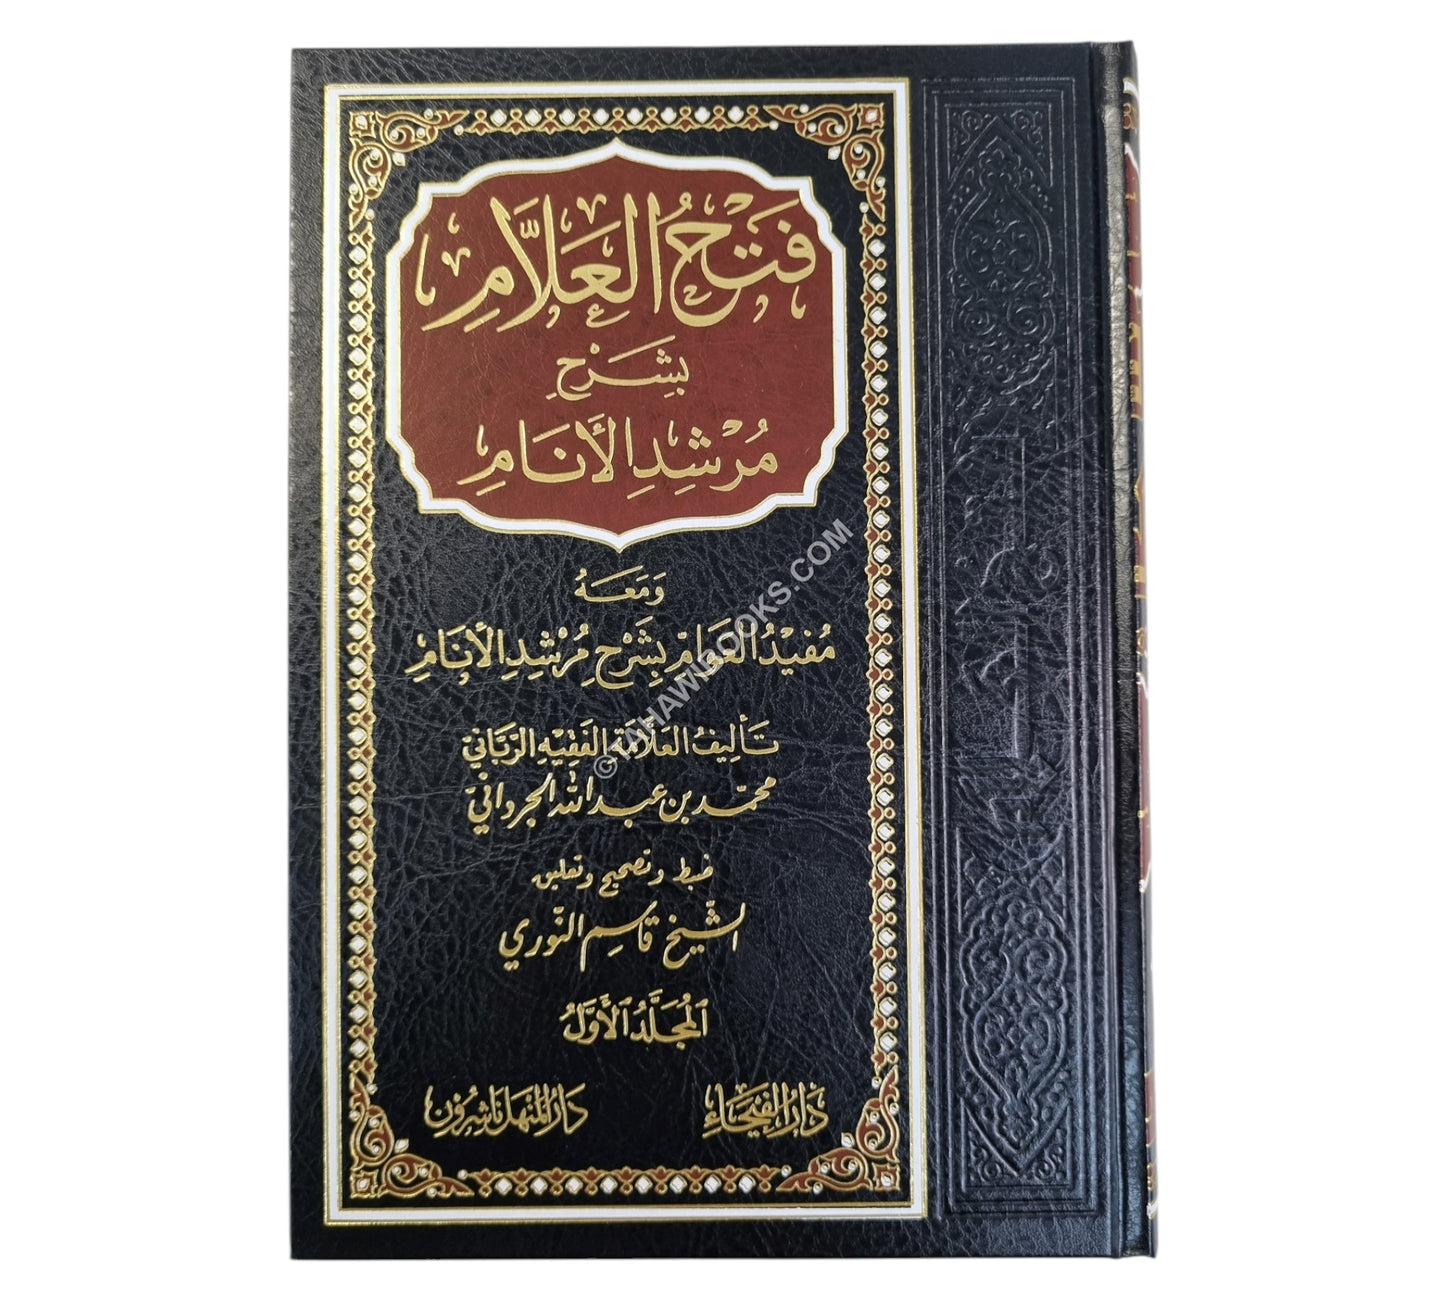 فَتْحُ العَلَّامِ
بِشَرْحِ
مُرْشِدِ الأَنَامِ
وَمَعَهُ
مُفِيْدُ العَوَامِّ بِشَرْحِ مُرْشِدِ الأَنَامِ
تَأْلِيفُ العَلَّامَةِ الفَقِيْهِ الرَّبَّانِيِّ
محمّد بن عبد الله الجرداني
ضبط وتصحيح وتعليق
الشّيخ قاسم النّوري
المُجَلَّدُ الأَوَّلُ
دَارُ الفَيْحَاءِ
دَارُ المَنْهَلِ نَاشِرُوْنَ
©TAHAWIBOOKS.COM